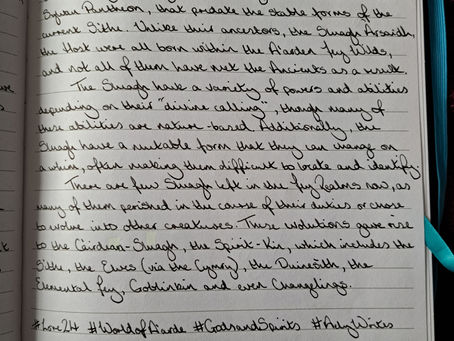 Pantheon, that predate the stable forms of the
current Sithe. Unlike their ancestors, the Sluagh Arsaidh,
the Host were all born within the Aiarden Fey Wilds,
and not all of them have met the Ancients as a result.
The Sluagh have a variety of powers and abilities
depending on their "divine calling", though many of
these abilities are nature-based. Additionally, the
Sluagh have a mutable form that they can change on
a whim, often making them difficult to locate and identify.
There are few Sluagh left in the Fey Realms now, as
many of them perished in the cause of their duties or chose
to evolve into other creatures. These evolutions gave rise
to the Càirdean-Sluagh, the Spirit-Kin, which includes the
Sithe, the Elves (via the Cymry), the the
Elemental Fey, Goblinkin and even Changelings.
#Lore24 #WorldofAiarde #GodsandSpirits